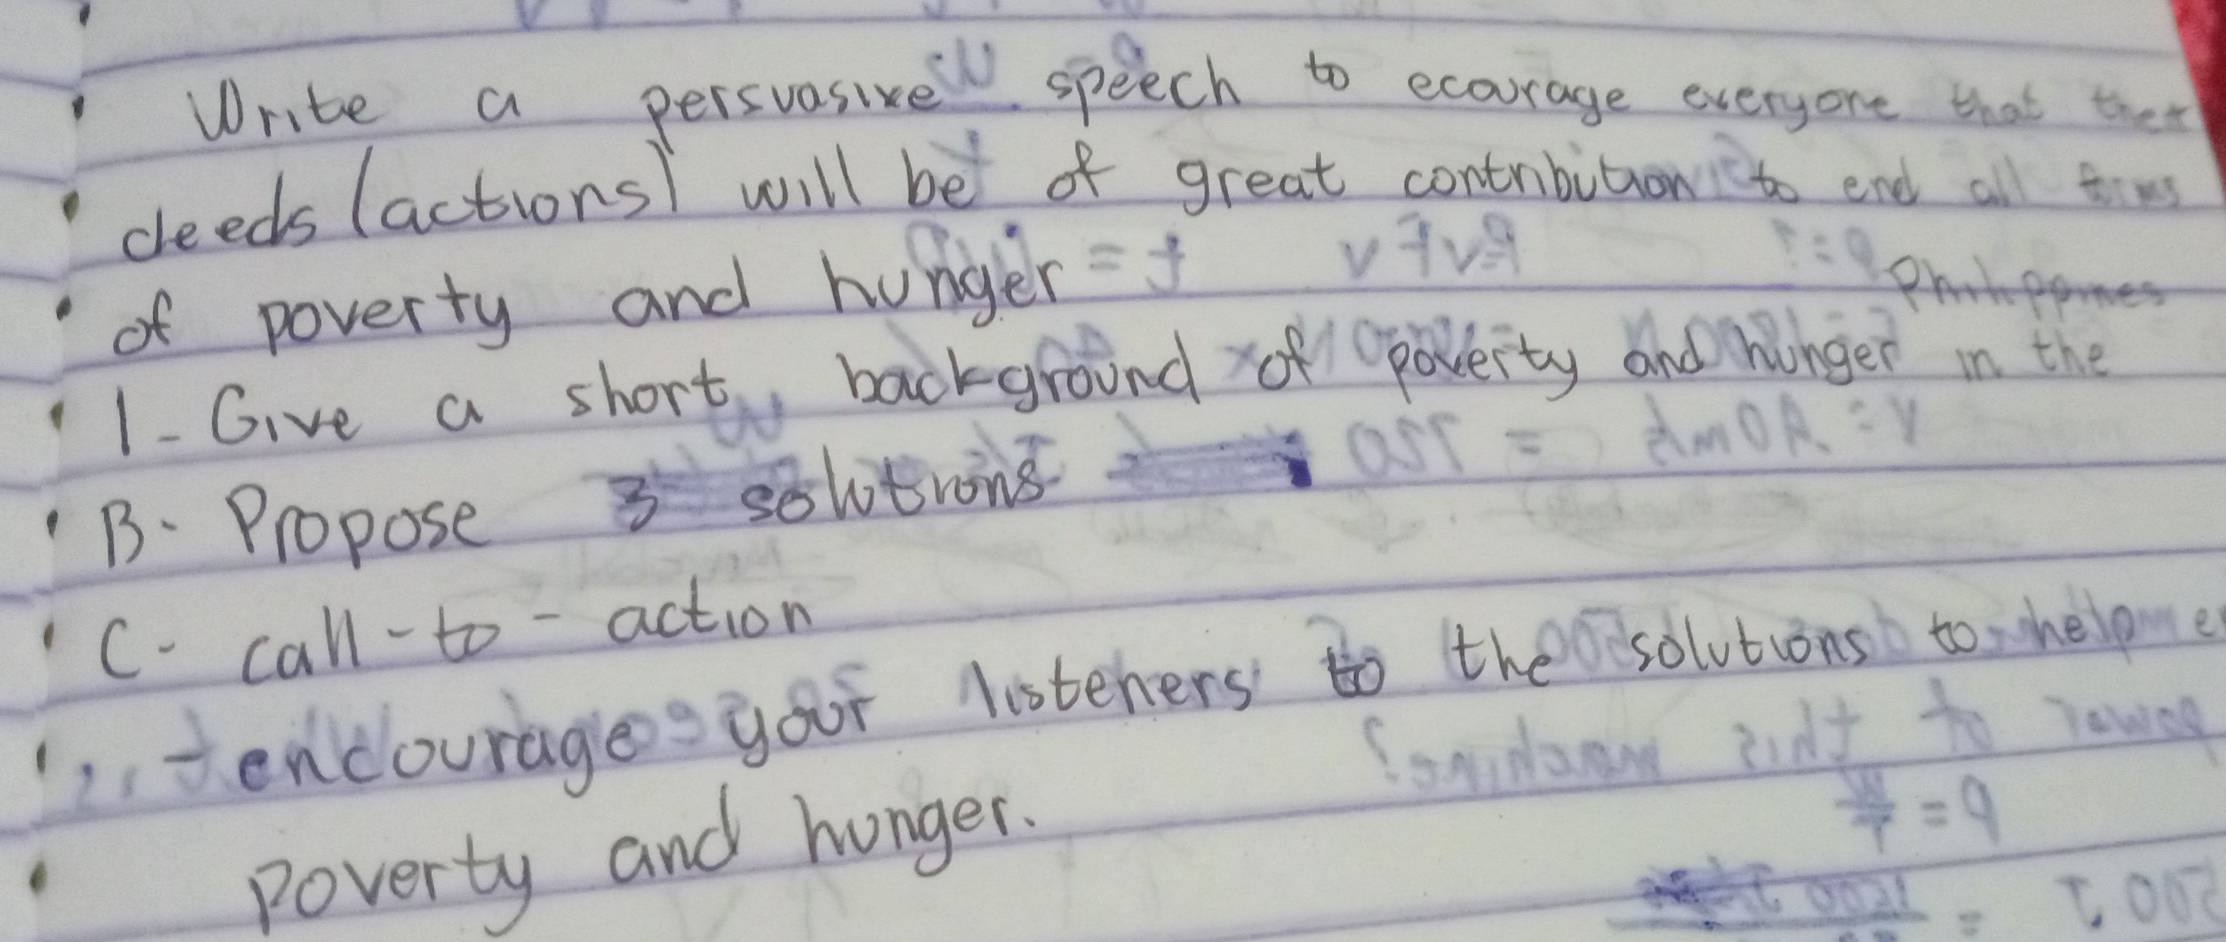 Write a persuasive speech to ecourage everyone that their
deeds (actions) will be of great contribution to end all forms
of poverty and hunger
Philippines
1- Give a short background of poverty and hunger in the
B- Propose 3 solutions
C- call-to-action
encourage your listeners to the solutions to help
poverty and hunger.